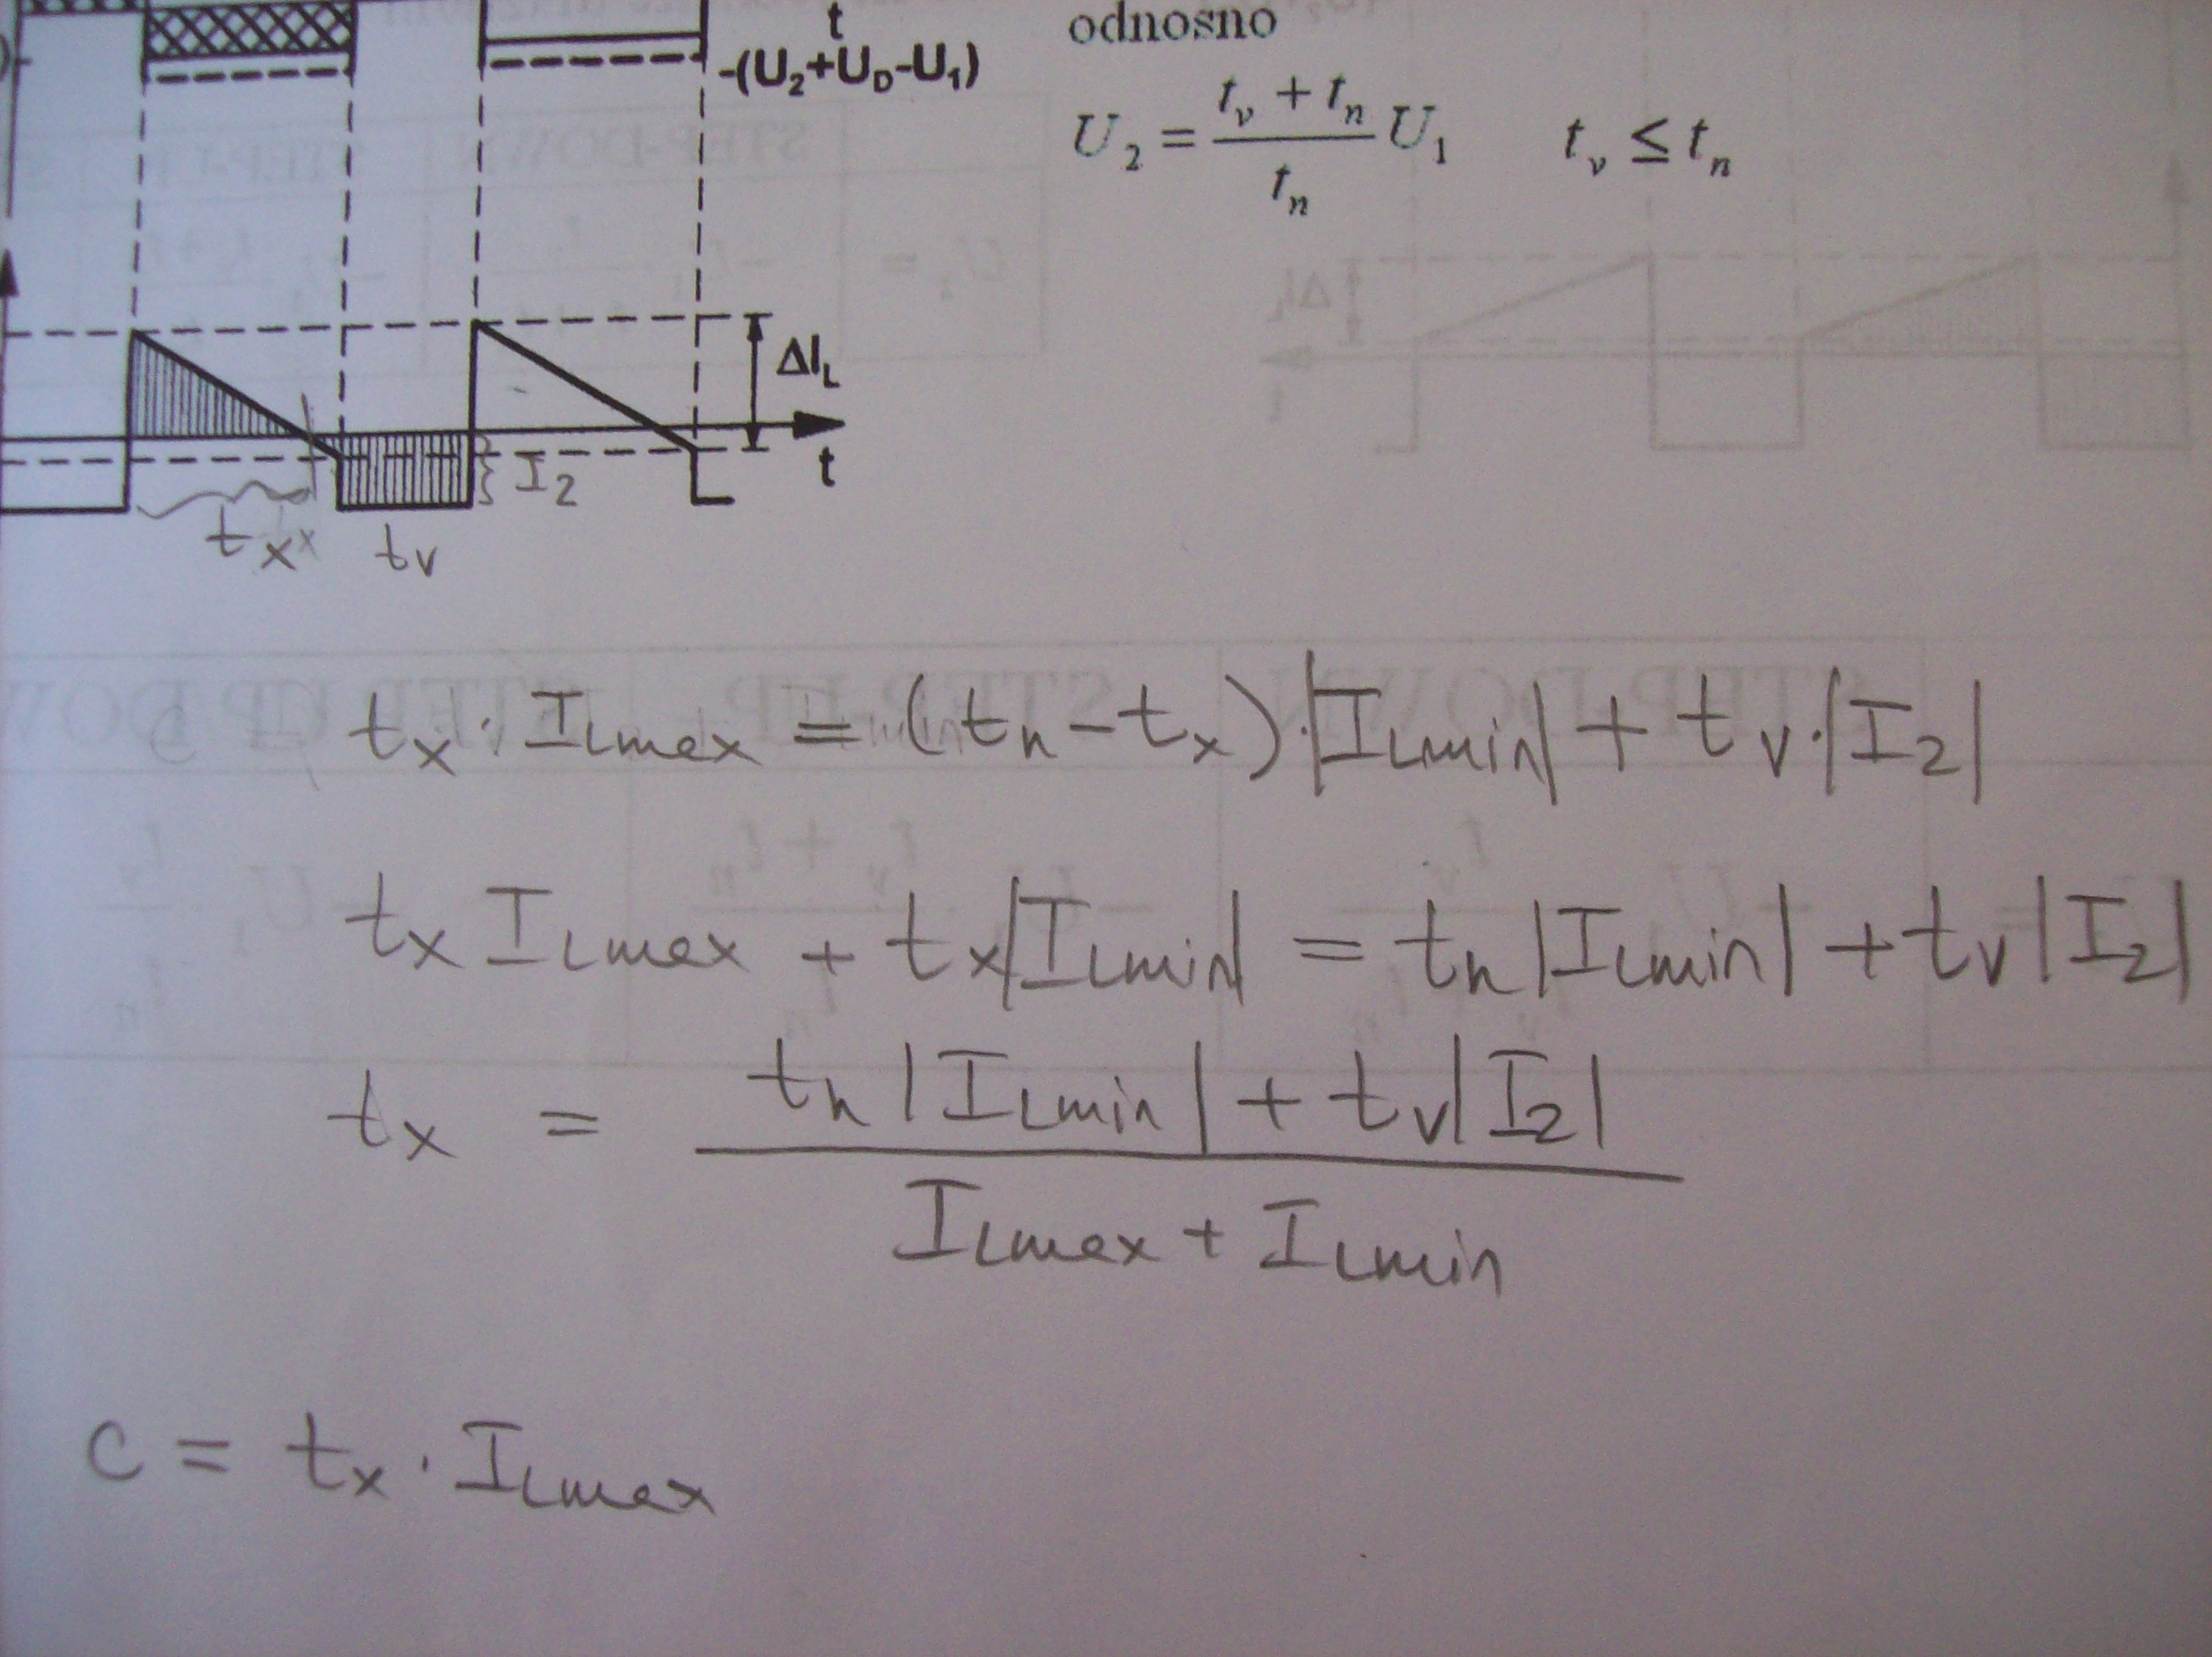 t
-(U₂+U_D-U₁)
odnosno
U₂ = (t_v + t_n)/t_n U₁ t_v ≤ t_n
ΔI_L
t
I₂
t_x x t_v
t_x · I_Lmax = (t_n - t_x)·|I_Lmin| + t_v·|I₂|
t_x I_Lmax + t_x|I_Lmin| = t_n|I_Lmin| + t_v|I₂|
t_x = (t_n|I_Lmin| + t_v|I₂|)/(I_Lmax + I_Lmin)
C = t_x · I_Lmax